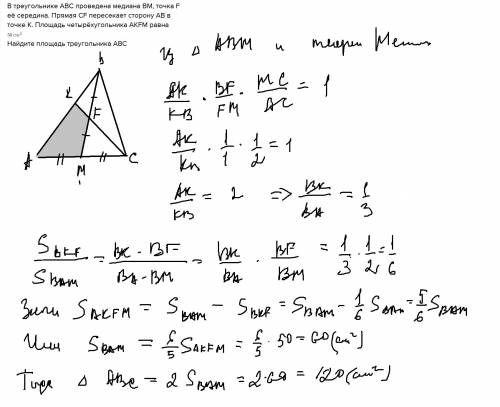 В треугольнике ABC проведена медиана BM, точка F
её середина. Прямая CF пересекает сторону AB в
точке K. Площадь четырёхугольника AKFM равна
50 см²
Найдите площадь треугольника ABC
Из △ ABM и теорем Менел
AK/KB · BF/FM · MC/AC = 1
AK/KB · 1/1 · 1/2 = 1
AK/KB = 2 => BK/BA = 1/3
B
K
F
A
M
C
S_BKF/S_BAM = BK · BF/BA · BM = BK/BA · BF/BM = 1/3 · 1/2 = 1/6
S_AKFM = S_BAM - S_BKF = S_BAM - 1/6 S_BAM = 5/6 S_BAM
Или S_BAM = 6/5 S_AKFM = 6/5 · 50 = 60 (см²)
Тогда △ ABC = 2 S_BAM = 2·60 = 120 (см²)